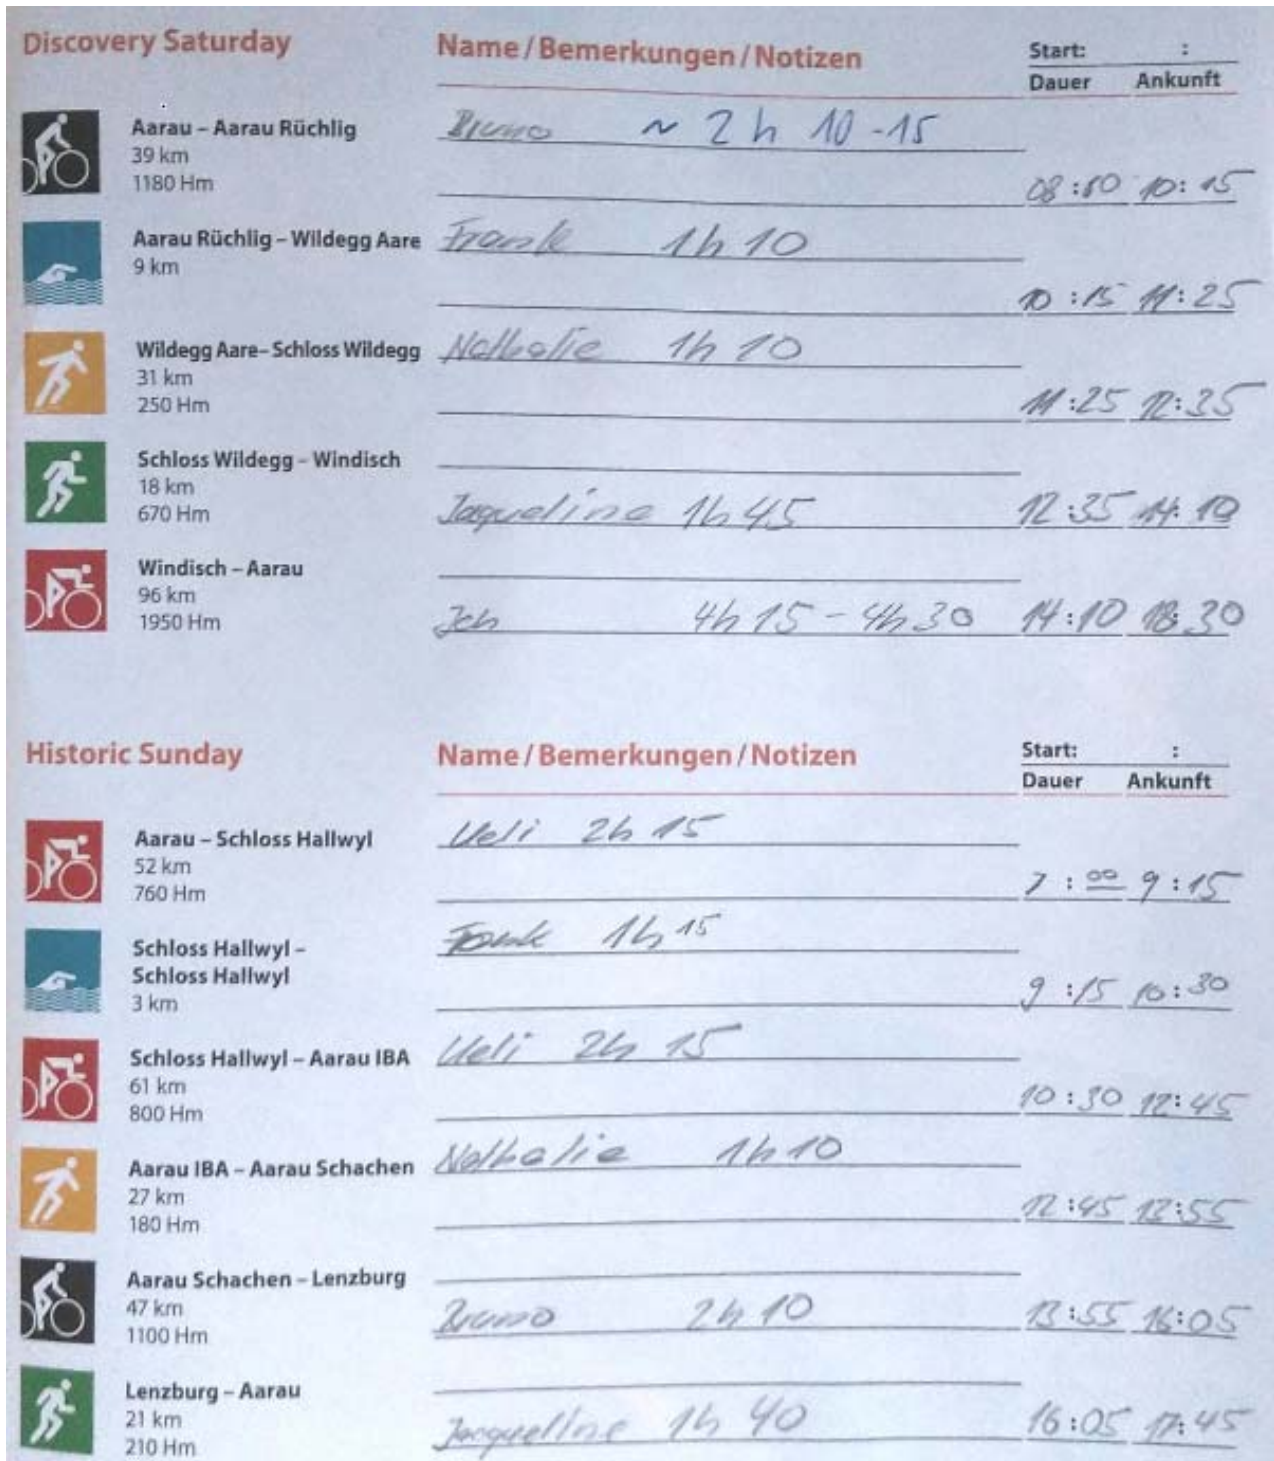 Discovery Saturday Name / Bemerkungen / Notizen Start: :
Dauer Ankunft
Aarau – Aarau Rüchlig Bruno ~ 2h 10-15
39 km
1180 Hm 08:00 10:15
Aarau Rüchlig – Wildegg Aare Frank 1h 10
9 km
10:15 11:25
Wildegg Aare– Schloss Wildegg Nathalie 1h 10
31 km
250 Hm 11:25 12:35
Schloss Wildegg – Windisch
18 km
670 Hm Jaqueline 1h 45 12:35 14:10
Windisch – Aarau
96 km
1950 Hm Ich 4h 15 - 4h 30 14:10 18:30
Historic Sunday Name / Bemerkungen / Notizen Start: :
Dauer Ankunft
Aarau – Schloss Hallwyl Ueli 2h 15
52 km
760 Hm 7:00 9:15
Schloss Hallwyl – Frank 1h 15
Schloss Hallwyl
3 km 9:15 10:30
Schloss Hallwyl – Aarau IBA Ueli 2h 15
61 km
800 Hm 10:30 12:45
Aarau IBA – Aarau Schachen Nathalie 1h 10
27 km
180 Hm 12:45 13:55
Aarau Schachen – Lenzburg
47 km
1100 Hm Bruno 2h 10 13:55 16:05
Lenzburg – Aarau
21 km
210 Hm Jacqueline 1h 40 16:05 17:45